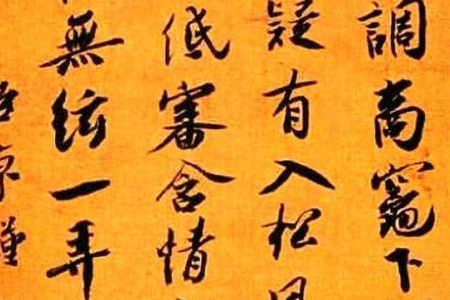 調商竈下
疑有入松
低審含情
無絃一弄